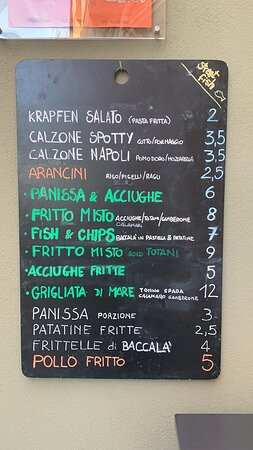 Street Fish
KRAPFEN SALATO (PASTA FRITTA) 2
CALZONE SPOTTY COTTO/FORMAGGIO 3,5
CALZONE NAPOLI POMODORO/MOZZARELLA 3,5
ARANCINI RISO/PISELLI/RAGU 2,5
• PANISSA & ACCIUGHE 6
• FRITTO MISTO ACCIUGHE/TOTANI/GAMBERONE CALAMARI 8
• FISH & CHIPS BACCALÀ IN PASTELLA & PATATINE 7
• FRITTO MISTO SOLO TOTANI 9
• ACCIUGHE FRITTE 5
• GRIGLIATA DI MARE TONNO SPADA CALAMARO GAMBERONE 12
PANISSA PORZIONE 3
PATATINE FRITTE 2,5
FRITTELLE di BACCALA' 4
POLLO FRITTO 5